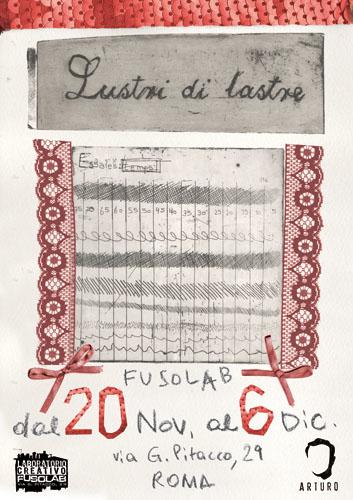 Lustri di lastre
FUSOLAB
dal 20 Nov. al 6 Dic.
via G. Pitacco, 29
ROMA
LABORATORIO
CREATIVO
FUSOLAB
VIA G. PITACCO, 29
ARTURO